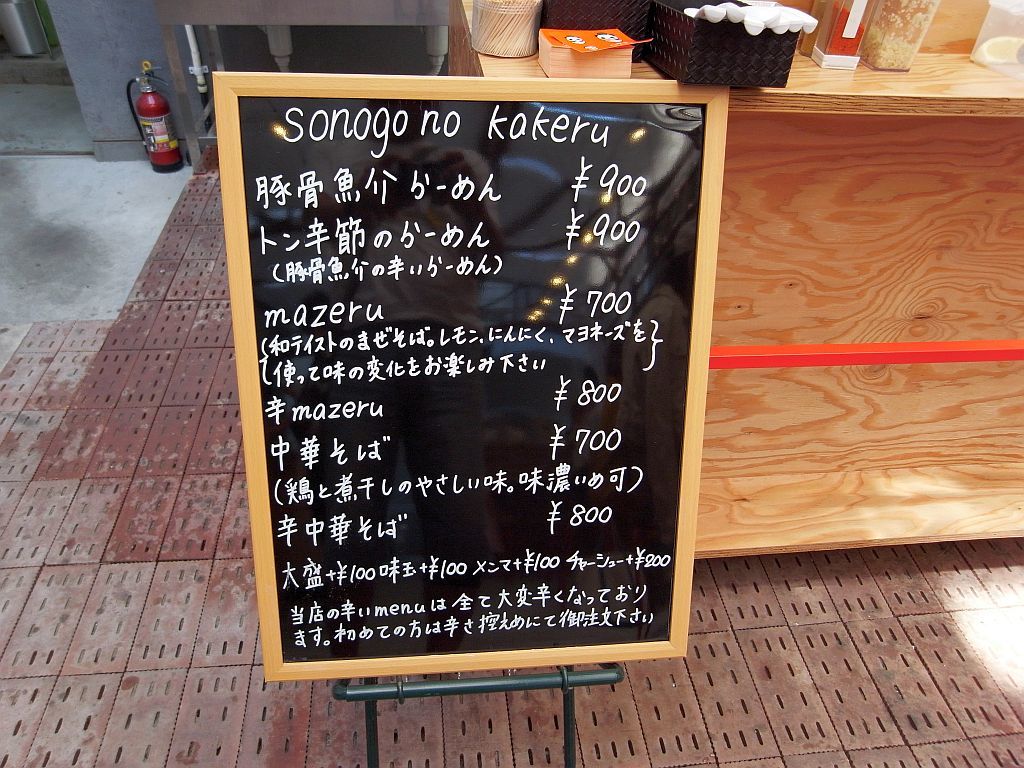 sonogo no kakeru
豚骨魚介らーめん ¥900
トン辛節のらーめん ¥900
(豚骨魚介の辛いらーめん)
mazeru ¥700
(和テイストのまぜそば。レモン、にんにく、マヨネーズを
使って味の変化をお楽しみ下さい)
辛mazeru ¥800
中華そば ¥700
(鶏と煮干しのやさしい味。味濃いめ可)
辛中華そば ¥800
大盛+¥100 味玉+¥100 メンマ+¥100 チャーシュー+¥200
当店の辛いmenuは全て大変辛くなっており
ます。初めての方は辛さ控えめにて御注文下さい